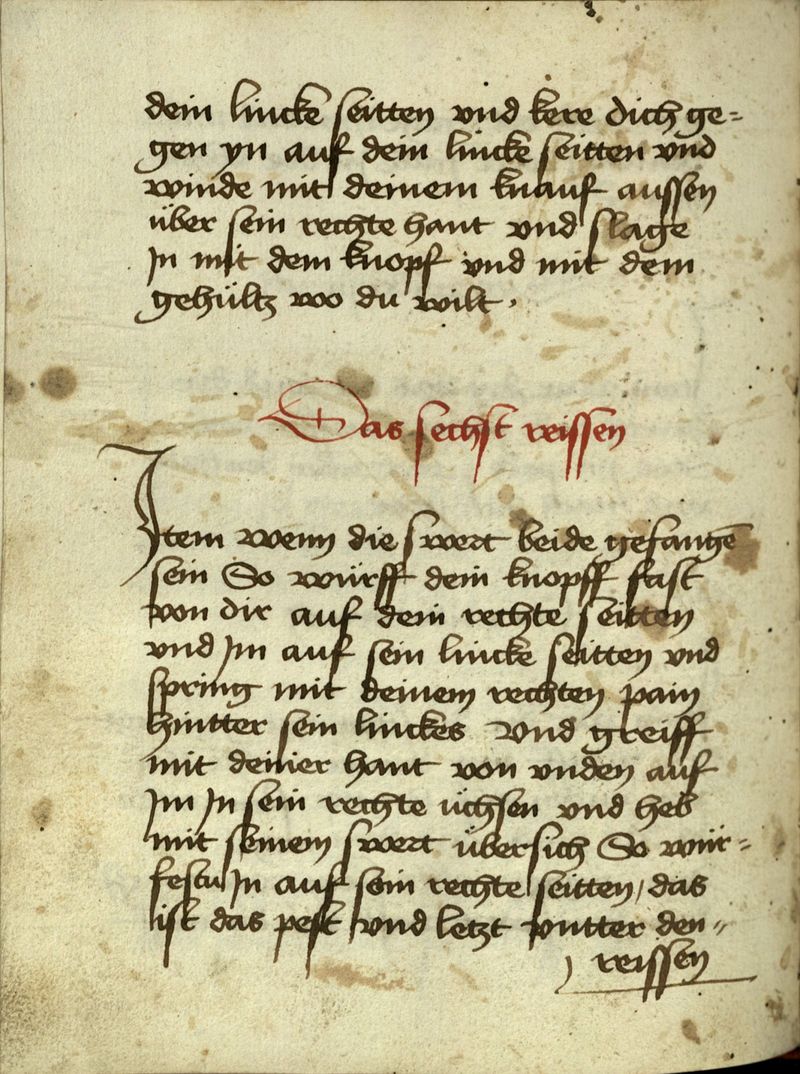 dein lincke seitten vnd kere dich ge=
gen yn auf dein lincke seitten vnd
winde mit deinem knauf aussen
über sein rechte hant vnd slage
Jn mit dem knopf vnd mit dem
gehültz wo du wilt.
Das sechst reissen
Jtem wenn die swert beide gefangē
sein So würff dein knopff fast
von dir auf dein rechte seitten
vnd Jm auf sein lincke seitten vnd
spring mit deinem rechten pain
hintter sein linckes vnd greiff
mit deiner hant von vnden auf
Jm Jn sein rechte üchsen vnd heb
mit seinem swert übersich So wür=
festu Jn auf sein rechte seitten / das
ist das pest vnd letzt vntter den=
reissen